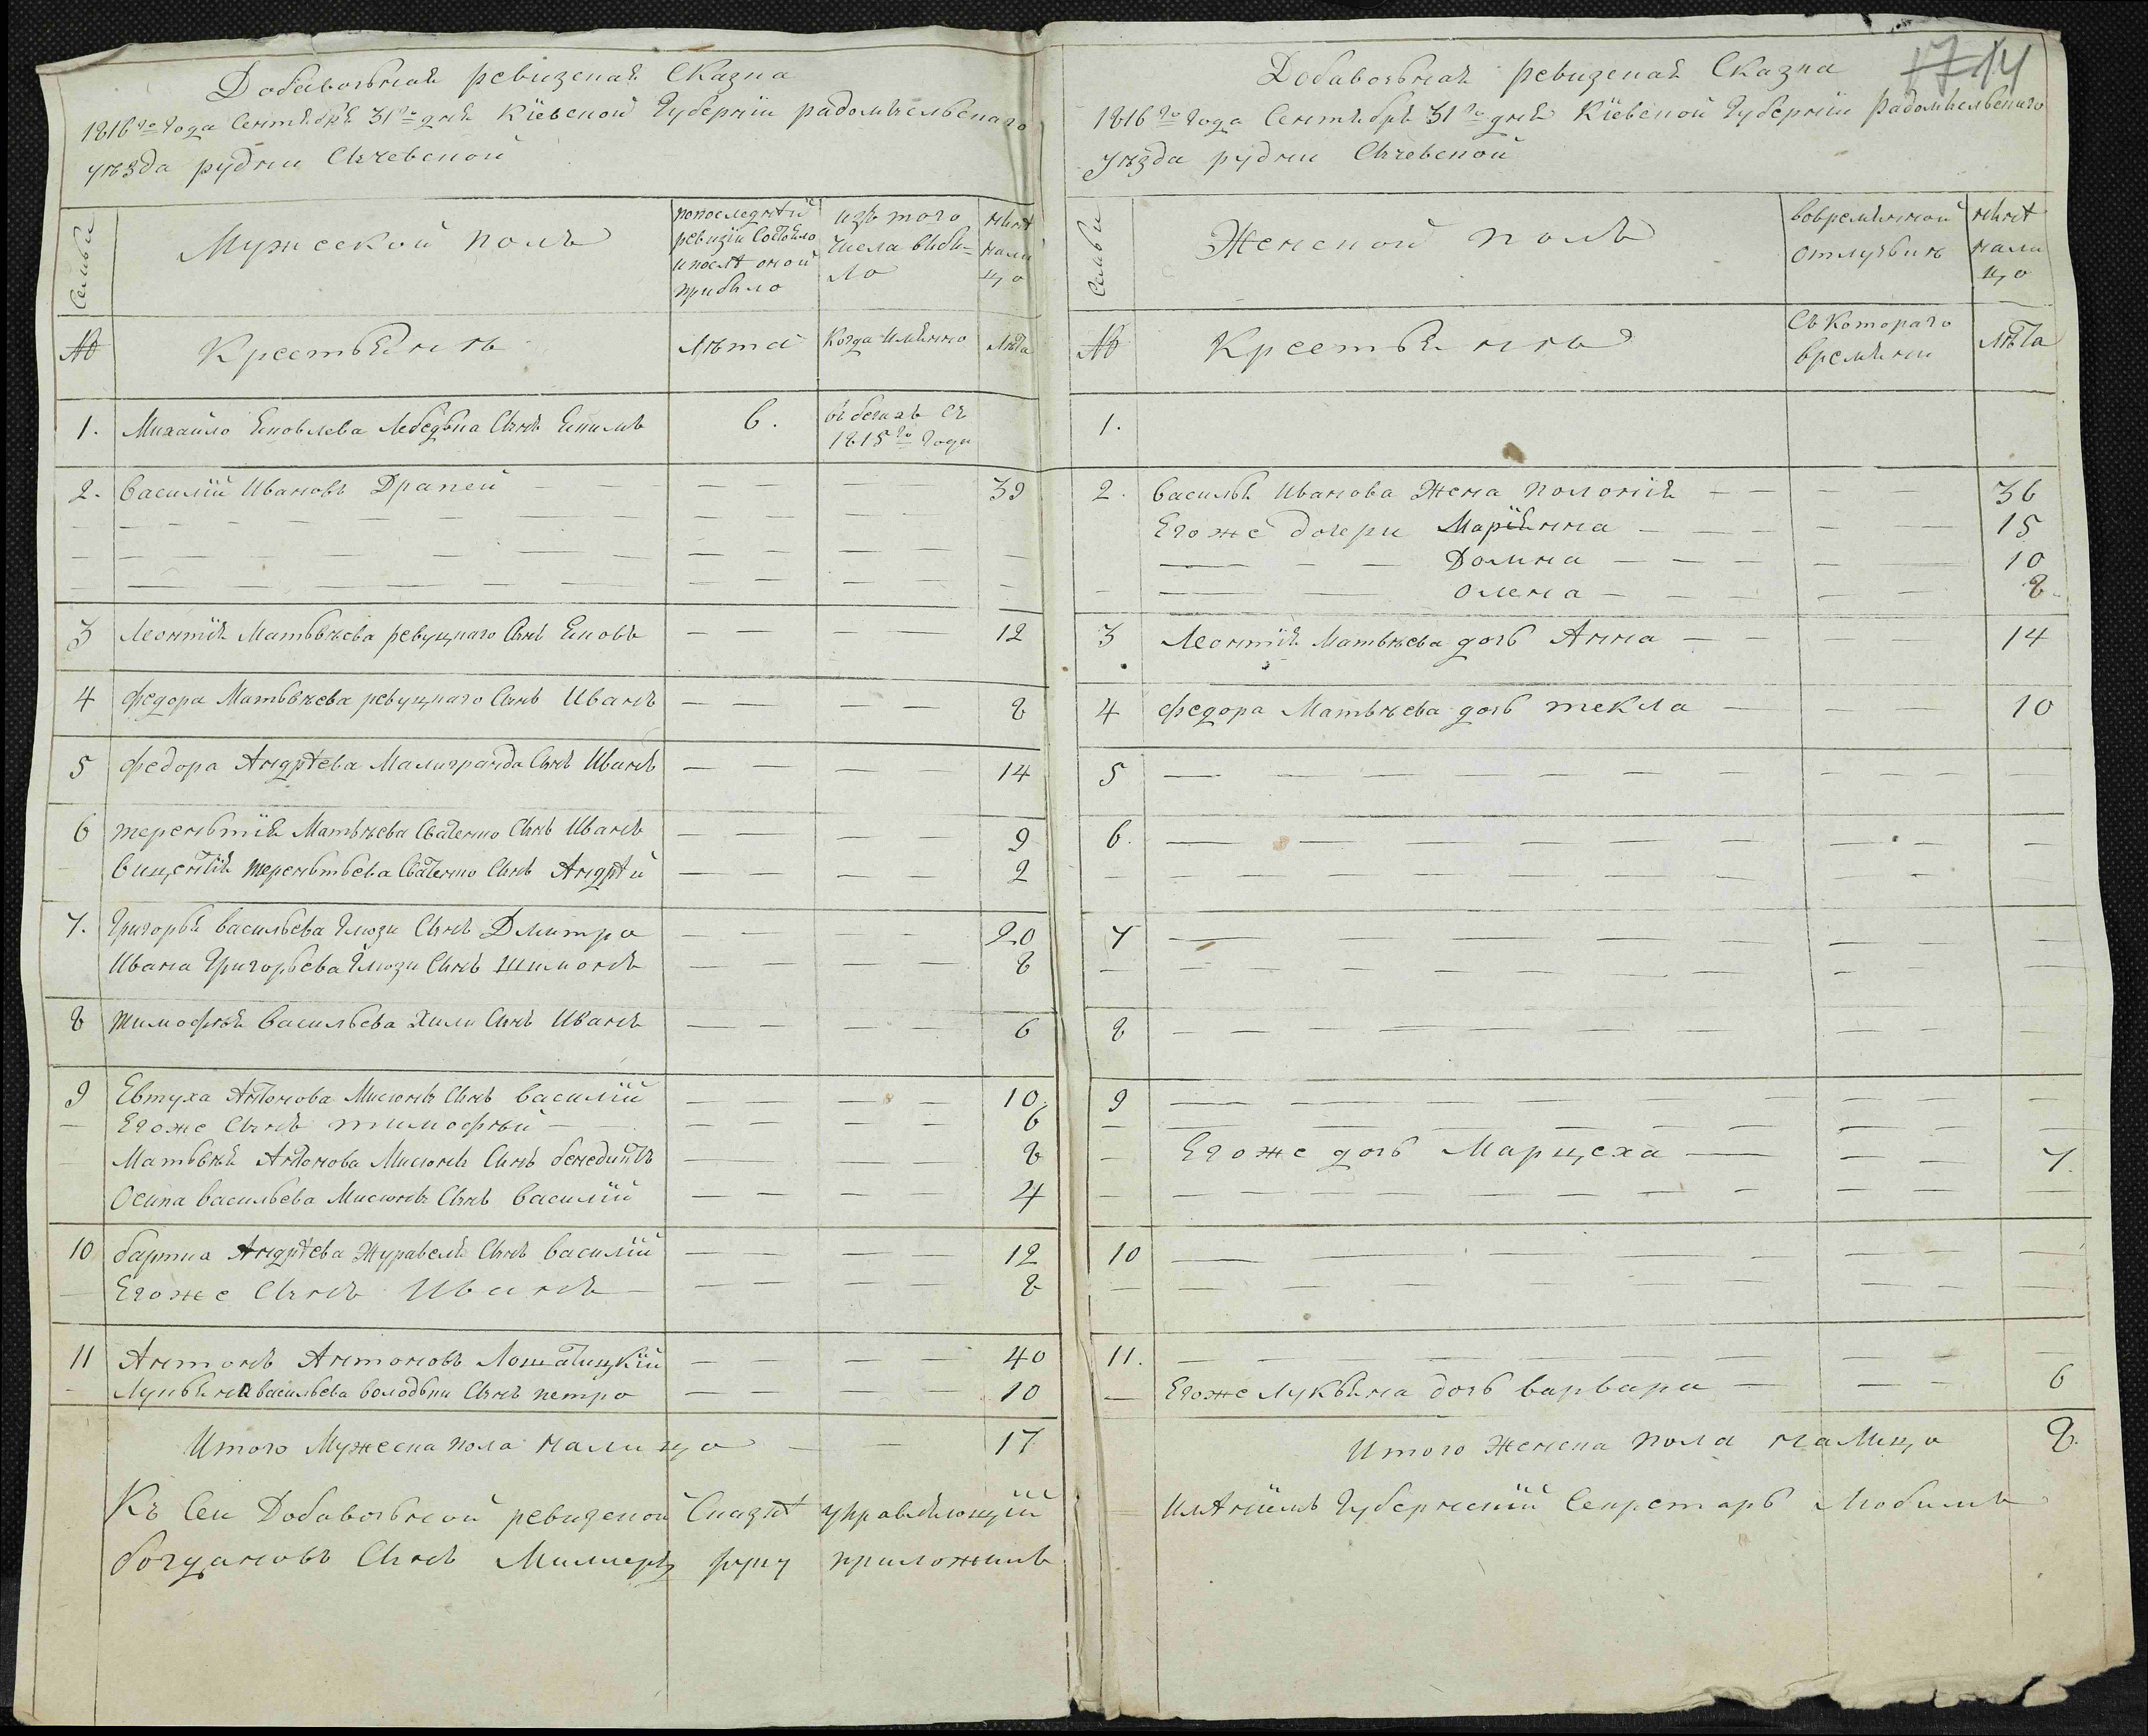 Добавочная ревизская Сказка
1816го Года Сентября 31го дня Кіевской Губерніи радомысльскаго
уѣзда рудни
Семьи
Мужеской полъ
попоследнѣй
ревизіи Состояло
и послѣ оной
прибыло
изъ того
числа выбы-
ло
нынѣ
нали
цо
№
Крестьянѣ
Лѣта
Когда имянно
Лѣта
1. Михайло Яковлева Лебедька Сынъ Якимъ 6. въ бегахъ съ
1815го Года
2. Василій Ивановъ Драпей 39
3 Леонтія Матвѣева ревуцкаго Сынъ Яковъ 12
4 федора Матвѣева ревуцкаго Сынъ Иванъ 8
5 федора Андрѣева Сынъ Иванъ 14
6 терентія Матвѣева Сынъ Иванъ 9
Вицентія терентьева Сынъ Андрѣй 2
7. Григорья васильева Сынъ Дмитро 20
Ивана Григорьева Сынъ 8
8 тимофѣя васильева Хили Сынъ Иванъ 6
9 Евтуха Антонова Мисюнь Сынъ василій 10.
Егоже Сынъ тимофѣй 6
Матвѣя Антонова Мисюнь Сынъ 8
Осипа васильева Мисюнь Сынъ василій 4
10 бартка Андрѣева Журавель Сынъ василій 12
Егоже Сынъ Иванъ 8
11 Антонъ Антоновъ 40
Лукьяна васильева Сынъ петро 10
Итого Мужеска пола налицо 17
Къ Сей Добавочной ревизской Сказкѣ управляющій
богдановъ Сынъ Миллеръ руку приложилъ
17 14
Добавочная ревизская Сказка
1816го Года Сентября 31го дня Кіевской Губерніи радомысльскаго
уѣзда рудни
Семьи
Женской полъ
вовремянной
отлучьки
нынѣ
нали
цо
№
Крестьянѣ
Съ Котораго
времяни
Лѣта
1.
2. василья Иванова Жена полонія 36
Егоже дочери Маріянна 15
Домна 10
Олена 8
3 Леонтія Матвѣева дочь Анна 14
4 федора Матвѣева дочь текла 10
5
6.
7
8
9
Егоже дочь Марцеха 7.
10
11.
Егоже Лукьяна дочь варвара 6
Итого Женска пола налицо 8.
Губернскій Секретарь